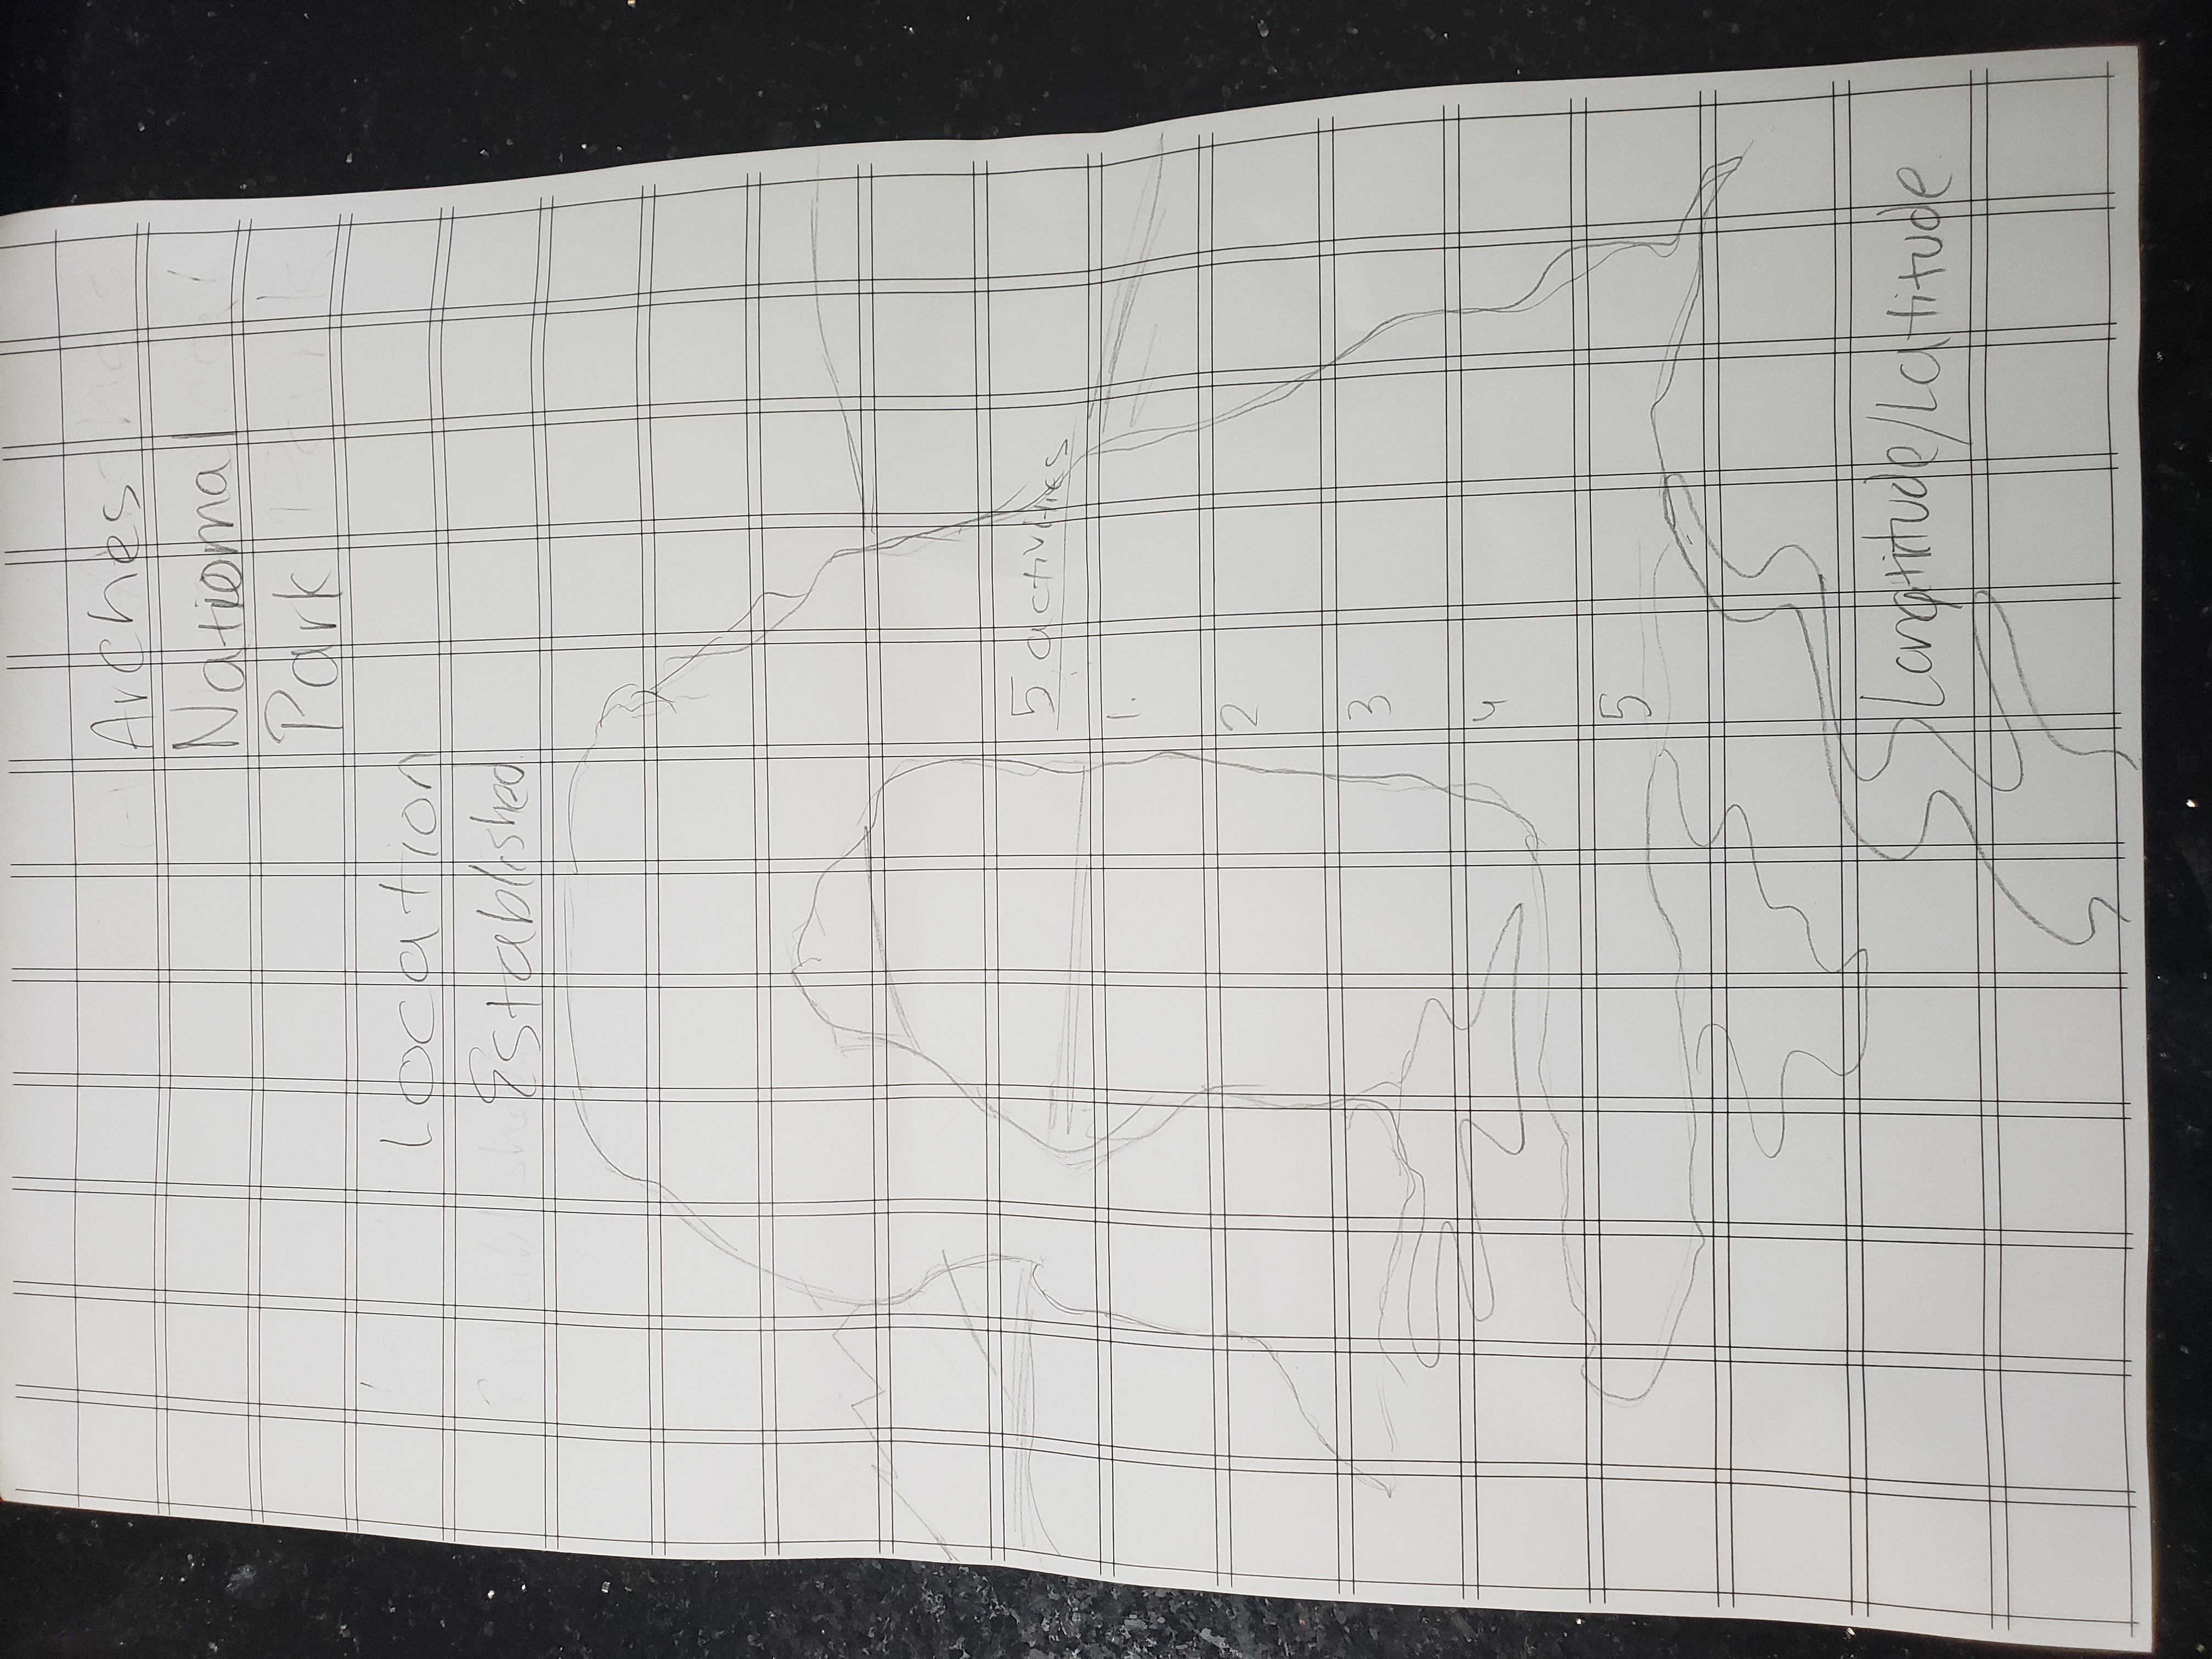 Arches
National
Park
Location
Established
5 activities
1.
2
3
4
5
Longtitude/Latitude